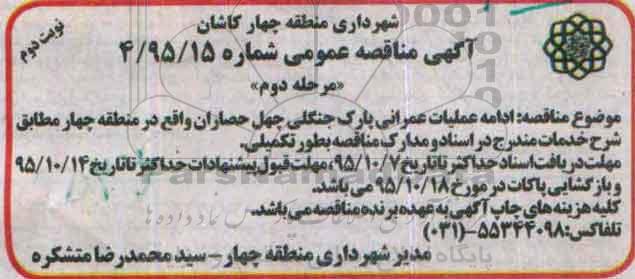 شهرداری منطقه چهار کاشان
نوبت دوم
آگهی مناقصه عمومی شماره ۴/۹۵/۱۵
«مرحله دوم»
موضوع مناقصه: ادامه عملیات عمرانی پارک جنگلی چهل حصاران واقع در منطقه چهار مطابق
شرح خدمات مندرج در اسناد و مدارک مناقصه بطور تکمیلی.
مهلت دریافت اسناد حداکثر تا تاریخ ۹۵/۱۰/۷، مهلت قبول پیشنهادات حداکثر تا تاریخ ۹۵/۱۰/۱۴
و بازگشایی پاکات در مورخ ۹۵/۱۰/۱۸ می باشد.
کلیه هزینه های چاپ آگهی به عهده برنده مناقصه می باشد.
تلفاکس: ۵۵۳۴۴۰۹۸-(۰۳۱)
مدیر شهرداری منطقه چهار - سید محمدرضا متشکره